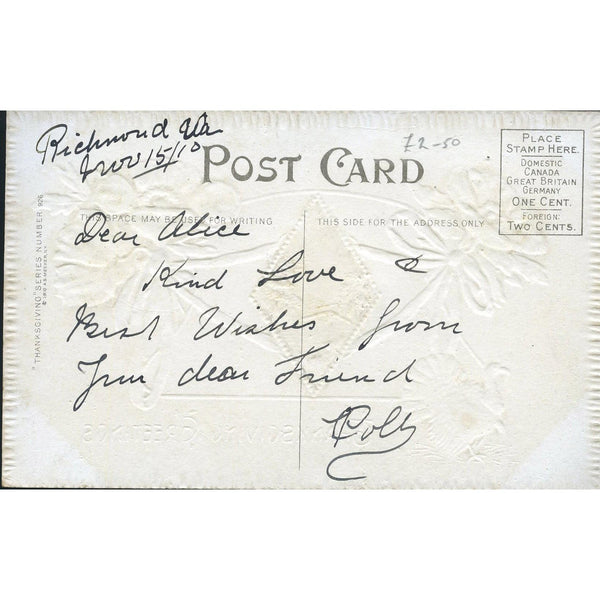 Richmond Va
Nov 15/10
£2-50
POST CARD
PLACE
STAMP HERE.
DOMESTIC
CANADA
GREAT BRITAIN
GERMANY
ONE CENT.
FOREIGN:
TWO CENTS.
THIS SPACE MAY BE USED FOR WRITING
THIS SIDE FOR THE ADDRESS ONLY
"THANKSGIVING" SERIES NUMBER 926
Dear Alice
Kind Love &
Best Wishes from
Your dear Friend